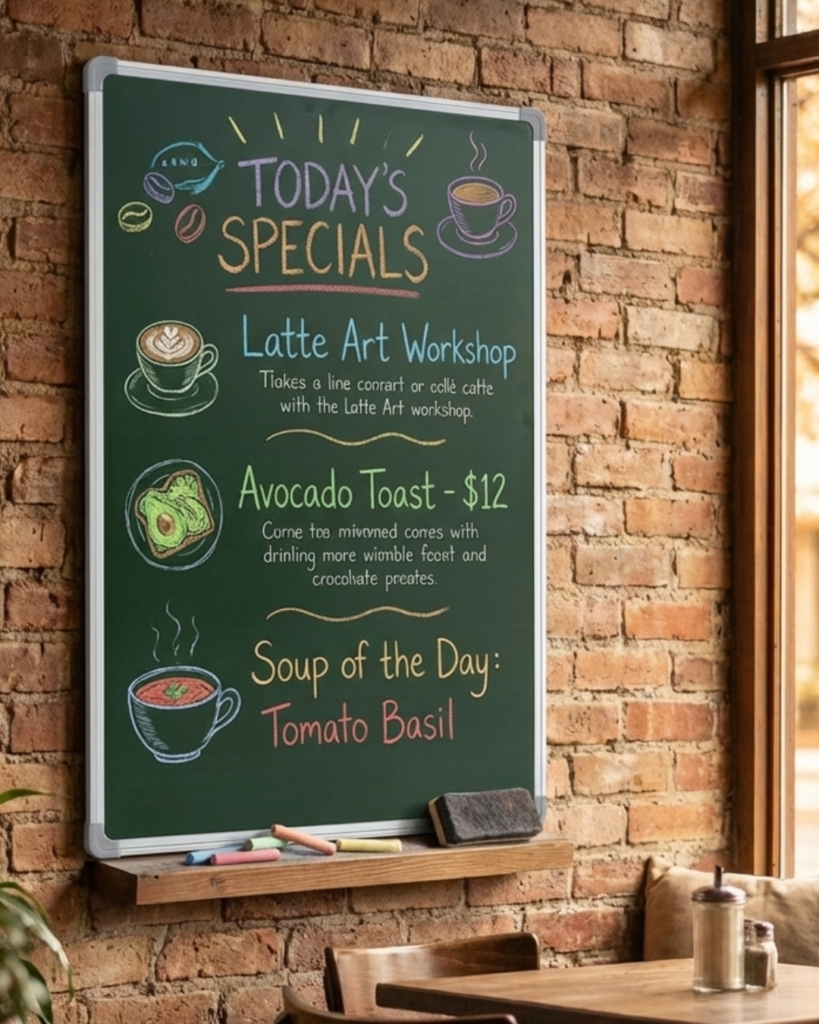 TODAY'S
SPECIALS
Latte Art Workshop
Tiakes a line conrart or collè catte
with the Latte Art workshop.
Avocado Toast - $12
Corne too mivovned cornes with
drinling more wimble foort and
crocoluate preates.
Soup of the Day:
Tomato Basil